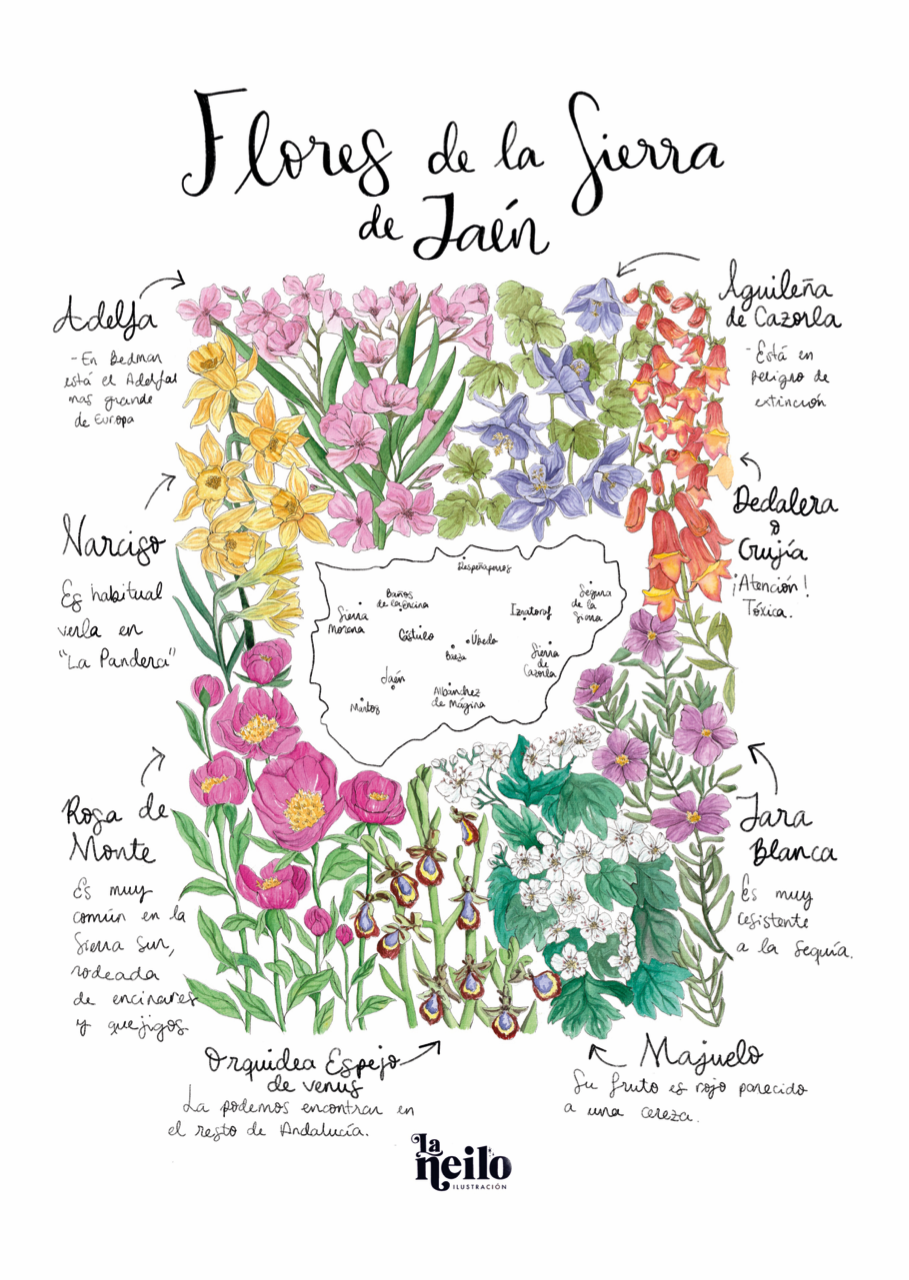 Flores de la Sierra
de Jaén
Adelfa
- En Bedmar
está el Adelfal
mas grande
de Europa
Aguileña
de Cazorla
- Está en
peligro de
extinción
Narciso
Es habitual
verla en
"La Pandera"
Dedalera
o
Crujía
¡Atención!
Tóxica.
Despeñaperros
Baños
de la Encina
Sierra
Morena
Cástulo
Úbeda
Baeza
Iznatoraf
Segura
de la
Sierra
Sierra
de
Cazorla
Jaén
Martos
Albánchez
de Mágina
Rosa de
Monte
Es muy
común en la
Sierra Sur,
rodeada
de encinares
y quejigos
Jara
Blanca
Es muy
resistente
a la sequía.
Orquidea Espejo
de venus
La podemos encontrar en
el resto de Andalucía.
Majuelo
Su fruto es rojo parecido
a una cereza.
La
neilo
ILUSTRACIÓN